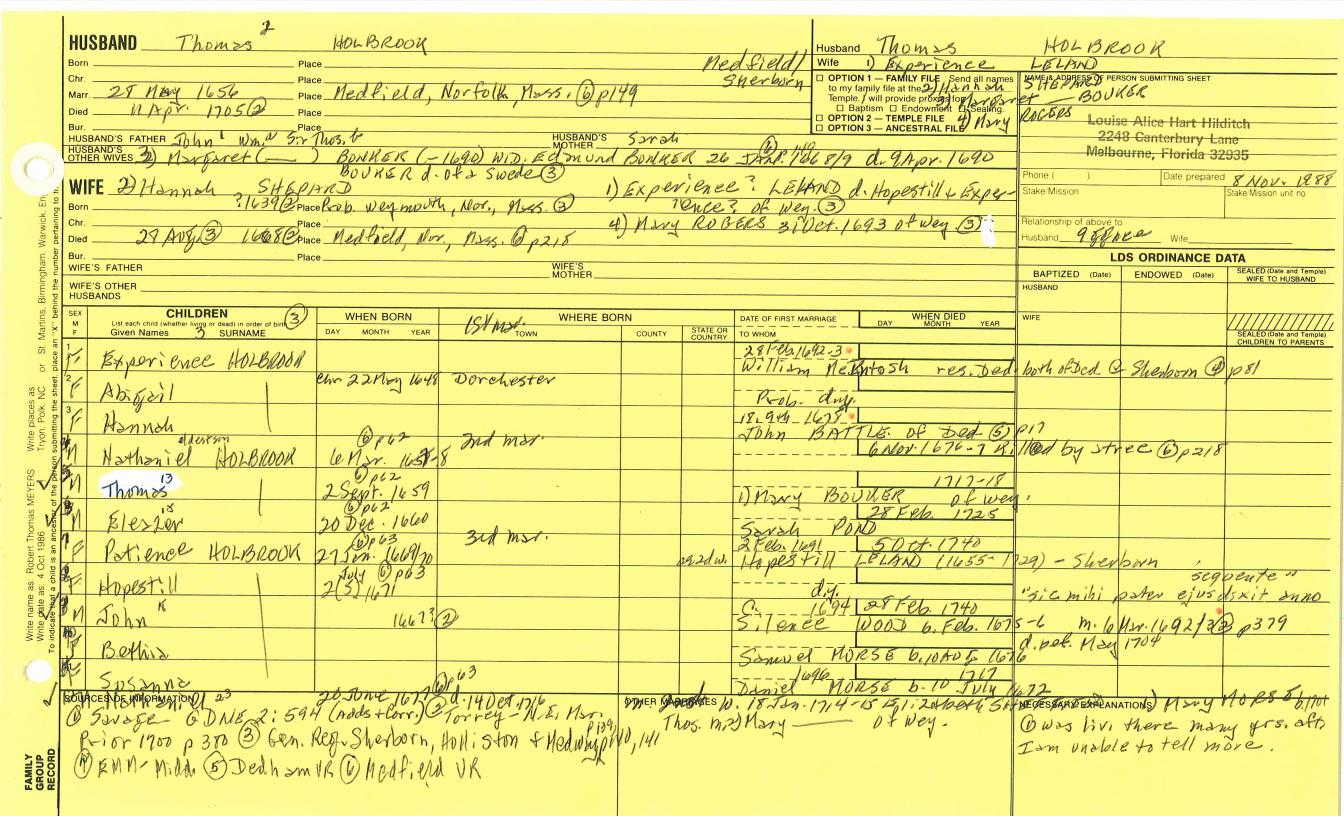 HUSBAND Thomas 2 HOLBROOK
Born Place Medfield/
Chr. Place Sherborn
Marr 28 May 1656 Place Medfield, Norfolk, Mass. (6) p149
Died 11 Apr. 1705 (2) Place
Bur. Place
HUSBAND'S FATHER John 1 Wm. Sir Thos. HUSBAND'S MOTHER Sarah
HUSBAND'S OTHER WIVES 3) Margaret (——) BOUKER (-1690) WID. Edmund BOUKER 26 Jan. 1668/9 d. 9 Apr. 1690
BOUKER d. of a Swede (3)
WIFE 2) Hannah SHEPARD 1) Experience? LELAND d. Hopestill & Exper-
Born ?1639 (2) Place Prob. Weymouth, Nor., Mass. (3) ience? of Wey. (3)
Chr. Place 4) Mary ROGERS 31 Oct. 1693 of Wey. (3)
Died 29 Aug (3) 1668 (2) Place Medfield, Nor., Mass. (6) p218
Bur. Place
WIFE'S FATHER WIFE'S MOTHER
WIFE'S OTHER HUSBANDS
Husband Thomas HOLBROOK
Wife 1) Experience LELAND
OPTION 1 — FAMILY FILE Send all names
to my family file at the 2) Hannah SHEPARD
Temple. I will provide proxies for 3) Margaret — BOUKER
Baptism Endowment Sealing
OPTION 2 — TEMPLE FILE 4) Mary ROGERS
OPTION 3 — ANCESTRAL FILE
NAME & ADDRESS OF PERSON SUBMITTING SHEET
Louise Alice Hart Hilditch
2248 Canterbury Lane
Melbourne, Florida 32935
Phone ( ) Date prepared 8 Nov. 1988
Stake Mission Stake Mission unit no.
Relationship of above to
Husband Wife
LDS ORDINANCE DATA
BAPTIZED (Date) ENDOWED (Date) SEALED (Date and Temple) WIFE TO HUSBAND
HUSBAND
WIFE
SEALED (Date and Temple) CHILDREN TO PARENTS
SEX M F
CHILDREN (3)
List each child (whether living or dead) in order of birth
Given Names 3 SURNAME
WHEN BORN DAY MONTH YEAR
WHERE BORN 1st mar. TOWN COUNTY STATE OR COUNTRY
DATE OF FIRST MARRIAGE TO WHOM
WHEN DIED DAY MONTH YEAR
1 F Experience HOLBROOK 28 Feb. 1692-3
William McIntosh res. Ded. both of Ded. @ Sherborn (4) p81
2 F Abigail chr 22 May 1648 Dorchester
Prob. d.y.
3 F Hannah 18. 9th 1678
John BATTLE of Ded (5) p17
M Nathaniel HOLBROOK (6) p62 2nd mar. 6 Nov. 1676-7 Killed by stree (6) p218
6 Mar. 1657-8
M Thomas 13 (6) p62 2 Sept. 1659 1717-18
1) Mary BOUKER of Wey.
M Eleazer 15 (6) p62 20 Dec. 1660 28 Feb. 1725
Sarah POND
F Patience HOLBROOK (6) p63 3rd mar. 2 Feb. 1691 5 Oct. 1740
27 Jan. 1669/70 as 2d w. Hopestill LELAND (1655-1729) - Sherborn
F Hopestill July (6) p63 2 (5) 1671 d.y. "sic mihi pater ejus dixit anno sequente"
M John 16 1667? (2) C. 1694 28 Feb. 1740
Silence WOOD b. Feb. 1675-6 m. 6 Mar. 1692/3 (2) p379
F Bethia d. bef. May 1704
Samuel MORSE
F Susanna (6) p63 1696 1717
Daniel MORSE b. 10 July 1672
SOURCES OF INFORMATION 20 June 1677 (2) d. 14 Oct. 1716
(1) Savage GDNE 2:594 (Adds + Corr.) (2) Torrey - N.E. Mar.
Prior 1700 p 380 (3) Gen. Reg. Sherborn, Holliston & Medway p139, 140, 141
(4) EMM - Midd. (5) Dedham VR (6) Medfield VR
OTHER MARRIAGES
Thos. m. 2) Mary —— of Wey.
NECESSARY EXPLANATIONS
(6) was liv. there many yrs. aft.
I am unable to tell more.
Write name as: Robert Thomas MEYERS Write places as: Tryon, Polk, NC or St. Martins, Birmingham, Warwick, En
Write date as: 4 Oct 1986
To indicate that a child is an ancestor of the person submitting the sheet, place an "X" behind the number pertaining to
FAMILY GROUP RECORD